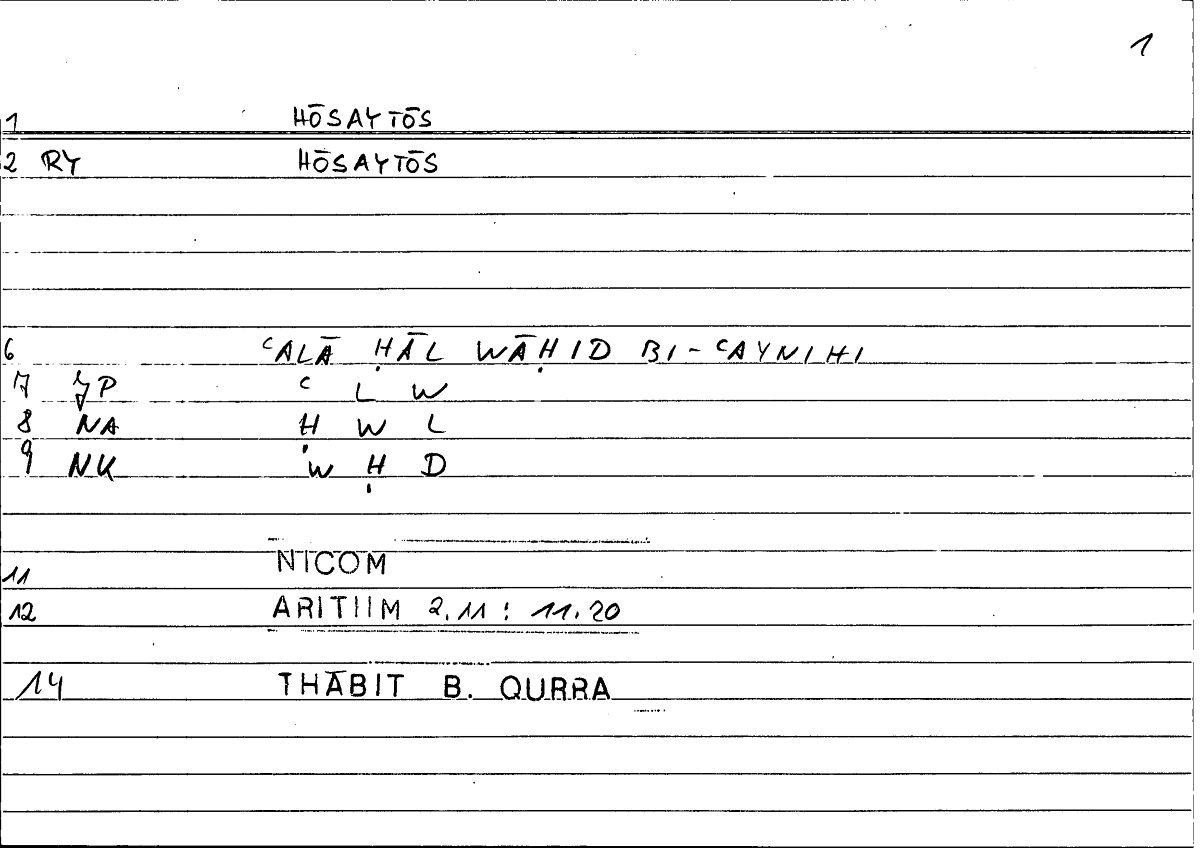 1
1 HŌSAYTŌS
2 RY HŌSAYTŌS
6 ʿALĀ ḤĀL WĀḤID BI-ʿAYNIHI
7 JP ʿ L W
8 NA Ḥ W L
9 NK W Ḥ D
11 NICOM
12 ARITHM 2.11 : 11.20
14 THĀBIT B. QURRA